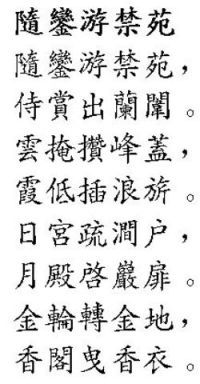 隨鑾游禁苑
隨鑾游禁苑，
侍賞出蘭闈。
雲掩攢峰蓋，
霞低插浪旂。
日宮疏澗户，
月殿啓巖扉。
金輪轉金地，
香閣曳香衣。